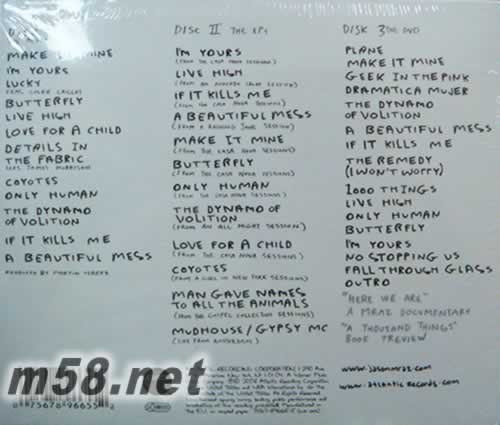 DISC
MAKE IT MINE
I'M YOURS
LUCKY
FEAT. COLBIE CAILLAT
BUTTERFLY
LIVE HIGH
LOVE FOR A CHILD
DETAILS IN
THE FABRIC
FEAT. JAMES MORRISON
COYOTES
ONLY HUMAN
THE DYNAMO
OF VOLITION
IF IT KILLS ME
A BEAUTIFUL MESS
PRODUCED BY MARTIN TEREFE
DISC II THE EPs
I'M YOURS
(FROM THE CASA NOVA SESSIONS)
LIVE HIGH
(FROM AN AVOCADO SALAD SESSION)
IF IT KILLS ME
(FROM THE CASA NOVA SESSIONS)
A BEAUTIFUL MESS
(FROM A RAINING JANE SESSION)
MAKE IT MINE
(FROM THE CASA NOVA SESSIONS)
BUTTERFLY
(FROM THE CASA NOVA SESSIONS)
ONLY HUMAN
(FROM THE CASA NOVA SESSIONS)
THE DYNAMO OF
VOLITION
(FROM AN ALL NIGHT SESSION)
LOVE FOR A CHILD
(FROM THE CASA NOVA SESSIONS)
COYOTES
(FROM A GIRL IN NEW YORK SESSIONS)
MAN GAVE NAMES
TO ALL THE ANIMALS
(FROM THE GOSPEL COLLECTION SESSIONS)
MUDHOUSE/GYPSY MC
(LIVE FROM AMSTERDAM)
DISK 3 THE DVD
PLANE
MAKE IT MINE
GEEK IN THE PINK
DRAMATICA MUJER
THE DYNAMO
OF VOLITION
A BEAUTIFUL MESS
IF IT KILLS ME
THE REMEDY
(I WON'T WORRY)
1000 THINGS
LIVE HIGH
ONLY HUMAN
BUTTERFLY
I'M YOURS
NO STOPPING US
FALL THROUGH GLASS
OUTRO
"HERE WE ARE"
A MRAZ DOCUMENTARY
"A THOUSAND THINGS"
BOOK PREVIEW
www.jasonmraz.com
www.atlanticrecords.com
m58.net
0 75678 96655 2